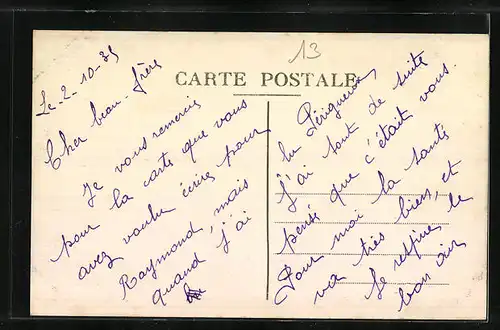 13
CARTE POSTALE
Le 2-10-35
Cher beau-frère
Je vous remercie
pour la carte que vous
avez voulu écrire pour
Raymond, mais
quand j'ai
lu Périgueux
j'ai tout de suite
pensé que c'était vous.
Pour moi la santé
va très bien, et
Je respire le
bon air